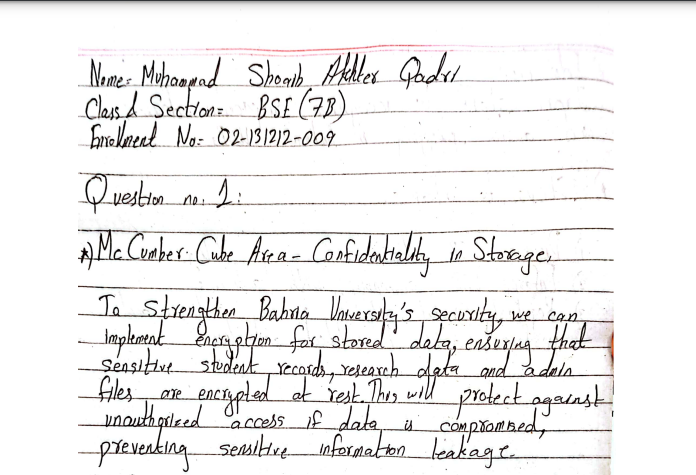 Name:- Muhammad Shoaib Akhter Qadri
Class & Section:- BSE (7B)
Enrollment No:- 02-131212-009
Question no. 1:
*) Mc Cumber Cube Area - Confidentiality in Storage,
To Strengthen Bahria University's security, we can
implement encryption for stored data, ensuring that
sensitive student records, research data and admin
files are encrypted at rest. This will protect against
unauthorized access if data is compromised,
preventing sensitive information leakage.